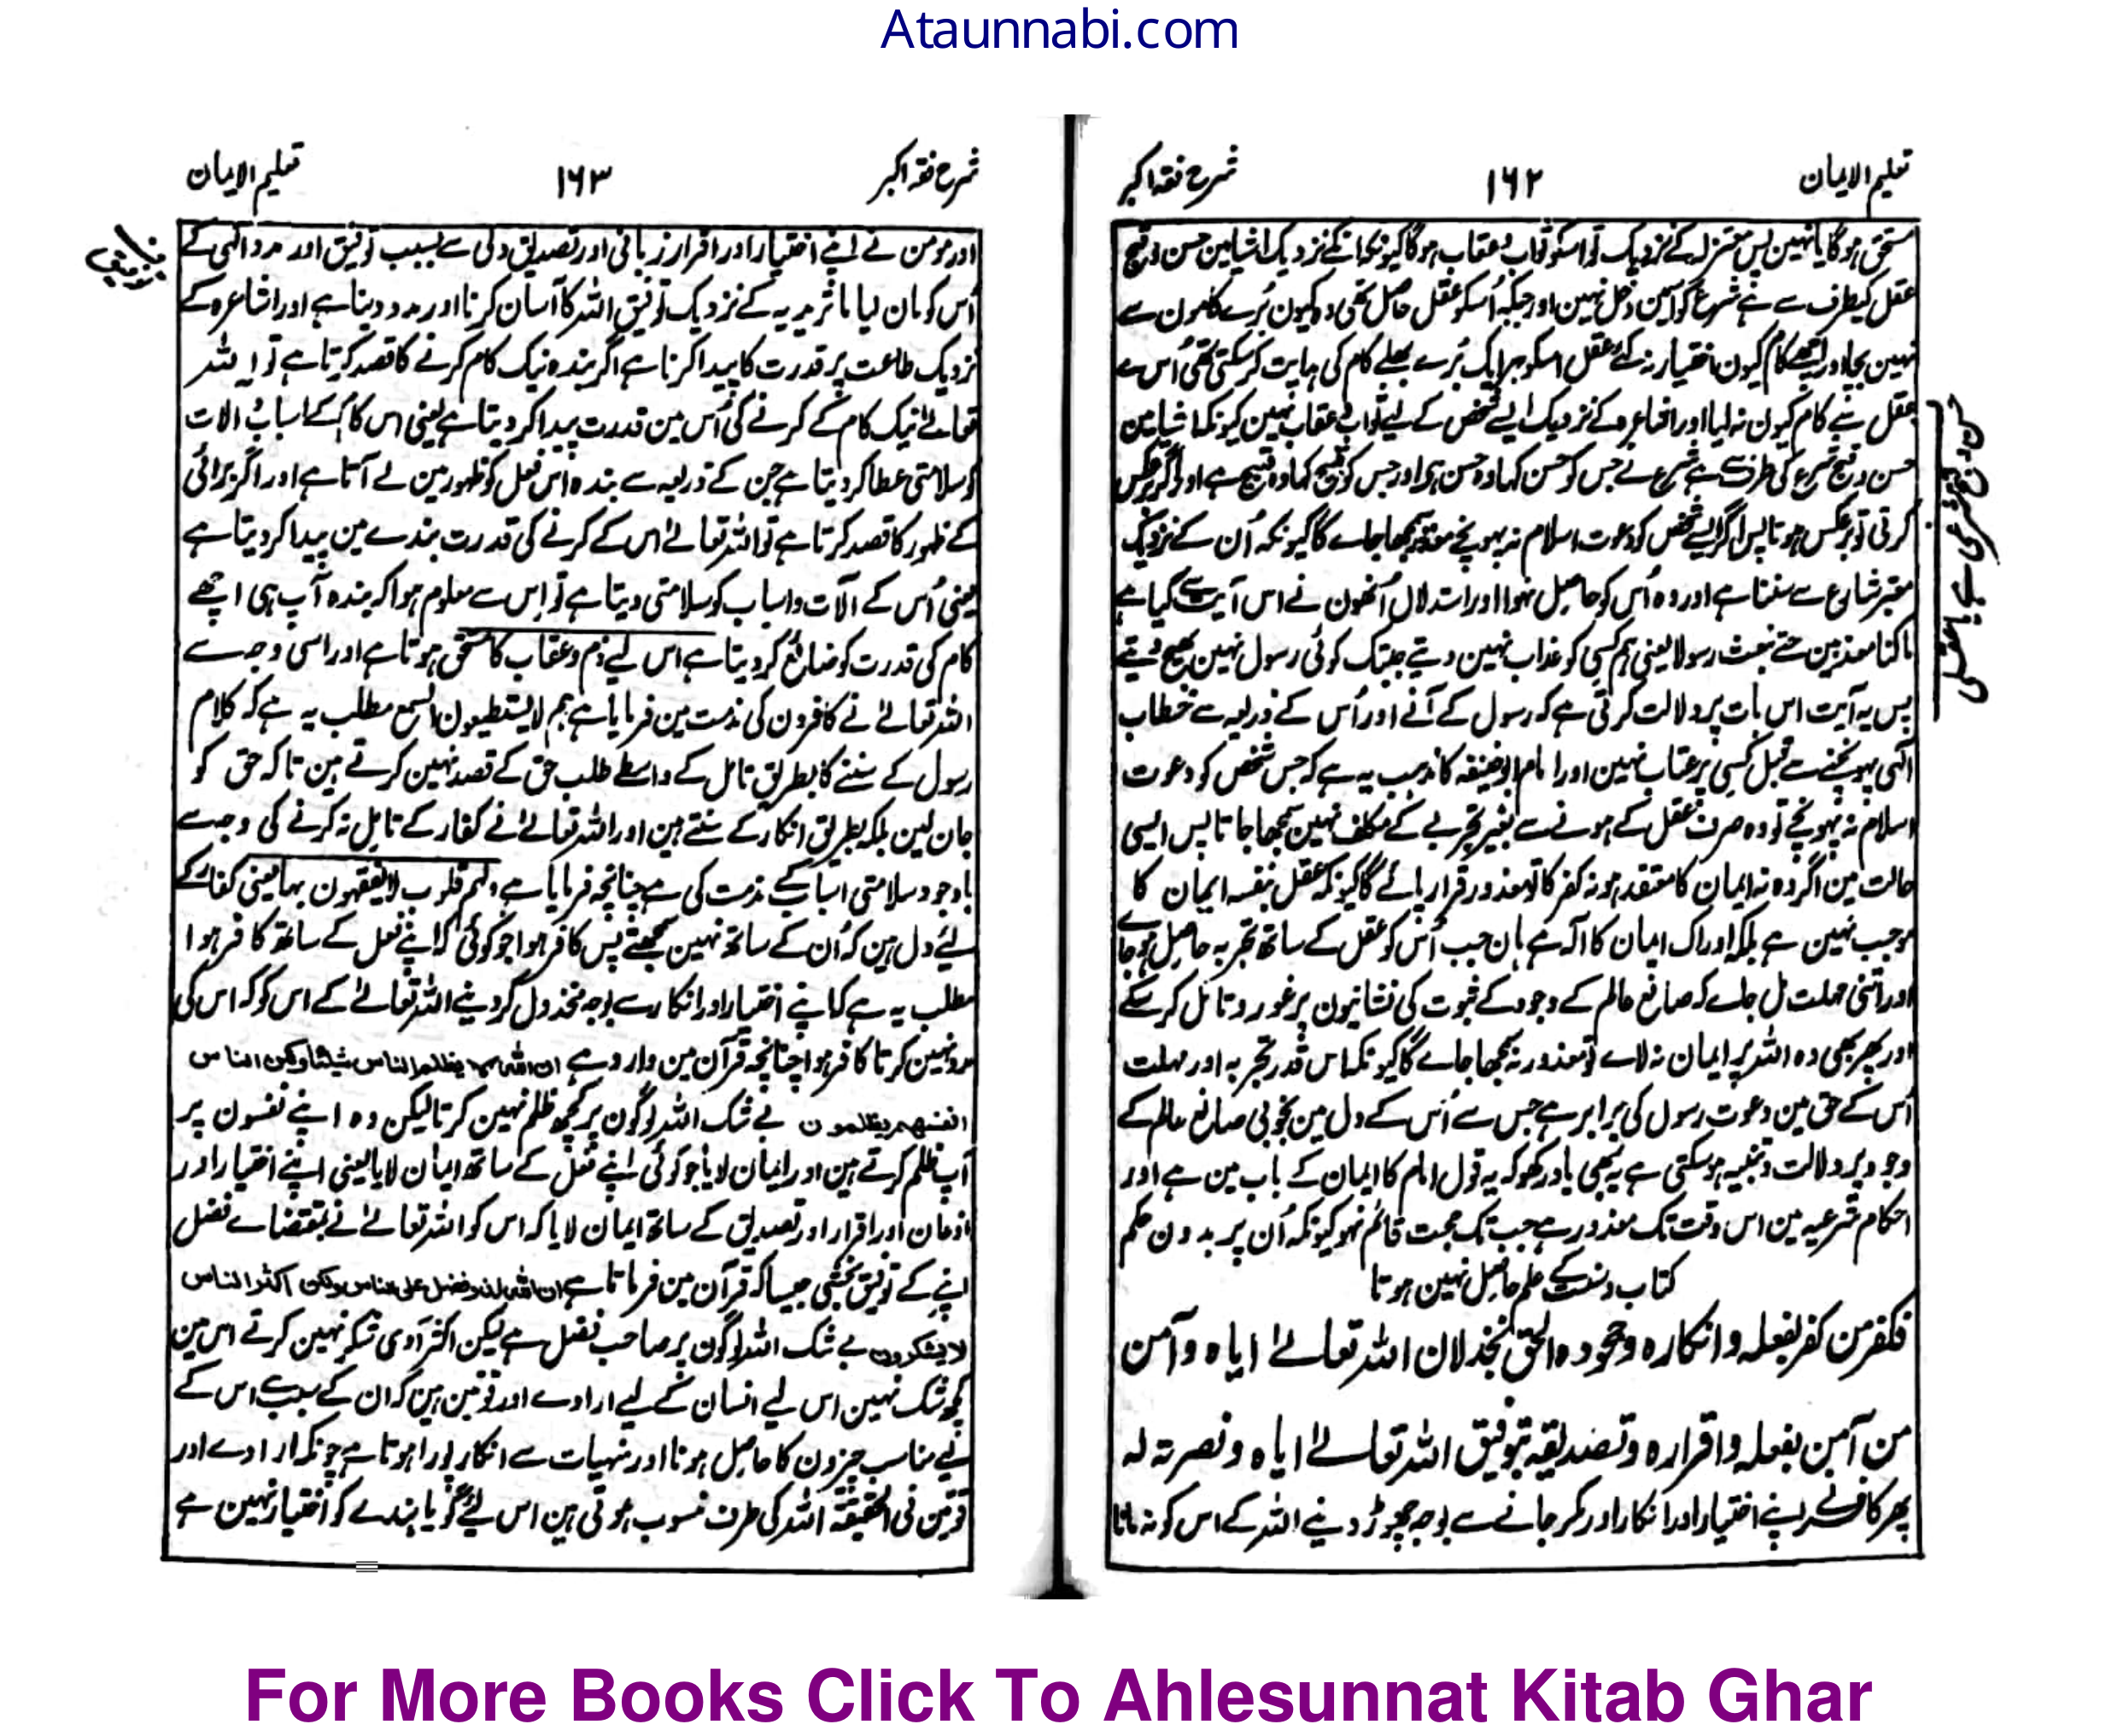 Ataunnabi.com
تعلیم الایمان
۱۶۲
شرح فقہ اکبر
مستحق ہوگا یا نہین پس معتزلہ کے نزدیک تو اسکو ثواب و عقاب ہوگا کیونکہ انکے نزدیک اشیا مین حسن و قبح
عقل کیطرف سے ہے شرع کو اسمین دخل نہین اور جبکہ اُسکو عقل حاصل تھی وہ کیون بُرے کامون سے
نہین بچا اور اچھے کام کیون اختیار نہ کئے عقل اسکو ہر ایک بُرے بھلے کام کی ہدایت کرسکتی تھی اُس سے
عقل نے کام کیون نہ لیا اور اشاعرہ کے نزدیک ایسے شخص کے لیے ثواب و عقاب نہین کیونکہ اشیا مین
حسن و قبح شرع کی طرف سے ہے شرع نے جس کو حسن کہا وہ حسن ہے اور جس کو قبیح کہا وہ قبیح ہے اور اگر برعکس
کرتی تو برعکس ہوتا پس اگر ایسے شخص کو دعوت اسلام نہ پہونچے معذور سمجھا جاے گا کیونکہ اُن کے نزدیک
معتبر شارع سے سننا ہے اور وہ اُس کو حاصل نہوا اور استدلال اُنھون نے اس آیت سے کیا ہے
ما کنا معذبین حتے نبعث رسولا یعنی ہم کسی کو عذاب نہین دیتے جبتک کوئی رسول نہین بھیج دیتے
پس یہ آیت اس بات پر دلالت کرتی ہے کہ رسول کے آنے اور اُس کے ذریعہ سے خطاب
الٰہی پہونچنے سے قبل کسی پر عتاب نہین اور امام ابو حنیفہ کا مذہب یہ ہے کہ جس شخص کو دعوت
اسلام نہ پہونچے تو وہ صرف عقل کے ہونے سے بغیر تجربے کے مکلف نہین سمجھا جاتا پس ایسی
حالت مین اگر وہ نہ ایمان کا معتقد ہو نہ کفر کا تو معذور قرار پائے گا کیونکہ عقل بنفسہ ایمان کا
موجب نہین ہے بلکہ ادراک ایمان کا آلہ ہے ہان جب اُس کو عقل کے ساتھ تجربہ حاصل ہوجاے
اور اتنی مہلت مل جاے کہ صانع عالم کے وجود کے ثبوت کی نشانیون پر غور و تامل کر سکے
اور پھر بھی وہ اللہ پر ایمان نہ لاے تو معذور نہ سمجھا جاے گا کیونکہ اس قدر تجربہ اور مہلت
اُس کے حق مین دعوت رسول کی برابر ہے جس سے اُس کے دل مین بخوبی صانع عالم کے
وجود پر دلالت و تنبیہ ہوسکتی ہے یہ بھی یاد رکھو کہ یہ قول امام کا ایمان کے باب مین ہے اور
احکام شرعیہ مین اس وقت تک معذور ہے جب تک حجت قائم نہو کیونکہ اُن پر بدون حکم
کتاب و سنت کے علم حاصل نہین ہوتا
فکفر من کفر بفعلہ وانکارہ وجحودہ الحق بخذلان اللہ تعالےٰ ایاہ وآمن
من آمن بفعلہ واقرارہ وتصدیقہ بتوفیق اللہ تعالےٰ ایاہ ونصرتہ لہ
پھر کافر نے اپنے اختیار اور انکار اور مکر جانے سے بوجہ چھوڑ دینے اللہ کے اس کو نہ مانا
حسن و قبح شرعی ہے یا عقلی
شرح فقہ اکبر
۱۶۳
تعلیم الایمان
اور مومن نے اپنے اختیار اور اقرار زبانی اور تصدیق دلی سے بسبب توفیق اور مدد الٰہی کے
اُس کو مان لیا ماتریدیہ کے نزدیک توفیق اللہ کا آسان کرنا اور مدد دینا ہے اور اشاعرہ کے
نزدیک طاعت پر قدرت کا پیدا کرنا ہے اگر بندہ نیک کام کرنے کا قصد کرتا ہے تو اللہ
تعالےٰ نیک کام کے کرنے کی اُس مین قدرت پیدا کر دیتا ہے یعنی اس کام کے اسباب و الات
کو سلامتی عطا کر دیتا ہے جن کے ذریعہ سے بندہ اس فعل کو ظہور مین لے آتا ہے اور اگر برائی
کے ظہور کا قصد کرتا ہے تو اللہ تعالےٰ اس کے کرنے کی قدرت بندے مین پیدا کر دیتا ہے
یعنی اُس کے آلات و اسباب کو سلامتی دیتا ہے تو اس سے معلوم ہوا کہ بندہ آپ ہی اچھے
کام کی قدرت کو ضائع کر دیتا ہے اس لیے ذم و عقاب کا مستحق ہوتا ہے اور اسی وجہ سے
اللہ تعالےٰ نے کافرون کی مذمت مین فرمایا ہے ہم لا یستطیعون السمع مطلب یہ ہے کہ کلام
رسول کے سننے کا بطریق تامل کے واسطے طلب حق کے قصد نہین کرتے ہین تاکہ حق کو
جان لین بلکہ بطریق انکار کے سنتے ہین اور اللہ تعالےٰ نے کفار کے تامل نہ کرنے کی وجہ سے
باوجود سلامتی اسباب کے مذمت کی ہے چنانچہ فرمایا ہے ولہم قلوب لا یفقہون بہا یعنی کفار کے
لیے دل ہین کہ اُن کے ساتھ نہین سمجھتے پس کافر ہوا جو کوئی کہ اپنے فعل کے ساتھ کافر ہوا
مطلب یہ ہے کہ اپنے اختیار اور انکار سے بوجہ مخذول کردینے اللہ تعالےٰ کے اس کو کہ اس کی
مدد نہین کرتا کافر ہوا چنانچہ قرآن مین وارد ہے ان اللہ لا یظلم الناس شیئا ولکن الناس
انفسہم یظلمون بے شک اللہ لوگون پر کچھ ظلم نہین کرتا لیکن وہ اپنے نفسون پر
آپ ظلم کرتے ہین اور ایمان لایا جو کوئی اپنے فعل کے ساتھ ایمان لایا یعنی اپنے اختیار اور
اذعان اور اقرار اور تصدیق کے ساتھ ایمان لایا کہ اس کو اللہ تعالےٰ نے بمقتضاے فضل
اپنے کے توفیق بخشی جیسا کہ قرآن مین فرماتا ہے ان اللہ لذو فضل علی الناس ولکن اکثر الناس
لا یشکرون بے شک اللہ لوگون پر صاحب فضل ہے لیکن اکثر آدمی شکر نہین کرتے اس مین
کچھ شک نہین اس لیے انسان کے لیے ارادے اور قوتین ہین کہ ان کے سبب سے اس کے
لیے مناسب چیزون کا حاصل ہونا اور منہیات سے انکار پورا ہوتا ہے چونکہ ارادے اور
قوتین فی الحقیقۃ اللہ کی طرف منسوب ہوتی ہین اس لیے گویا بندے کو اختیار نہین ہے
For More Books Click To Ahlesunnat Kitab Ghar